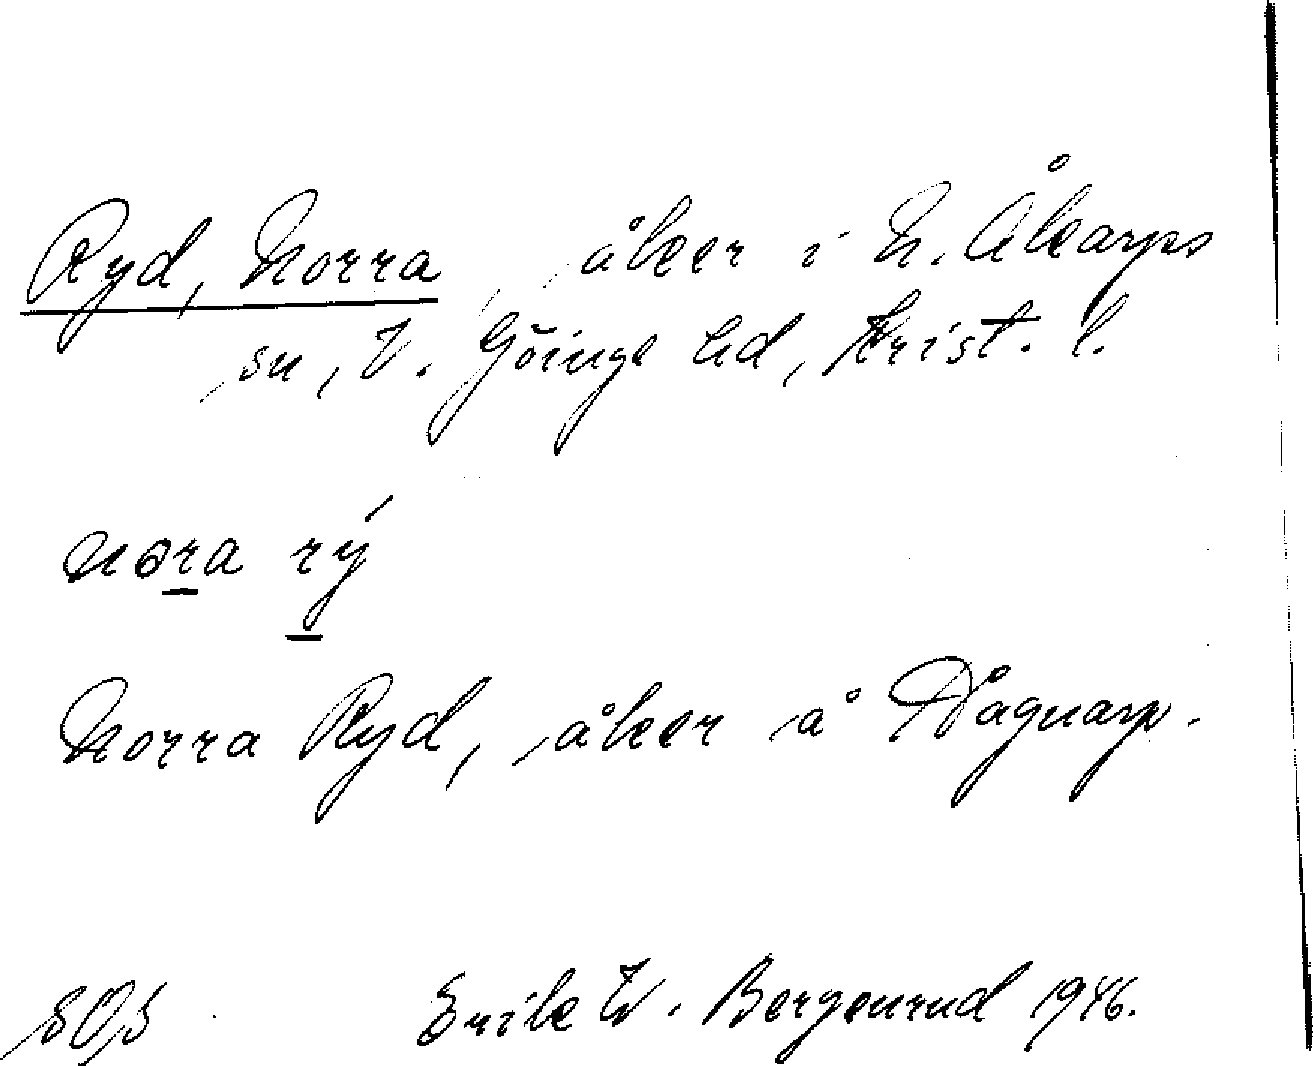 Ryd, Norra, åker i N. Åkarps
sn, V. Göinge hd, Krist. l.
nora rý
Norra Ryd, åker å Dågnarp.
SOS Erik W. Bergenrud 1946.